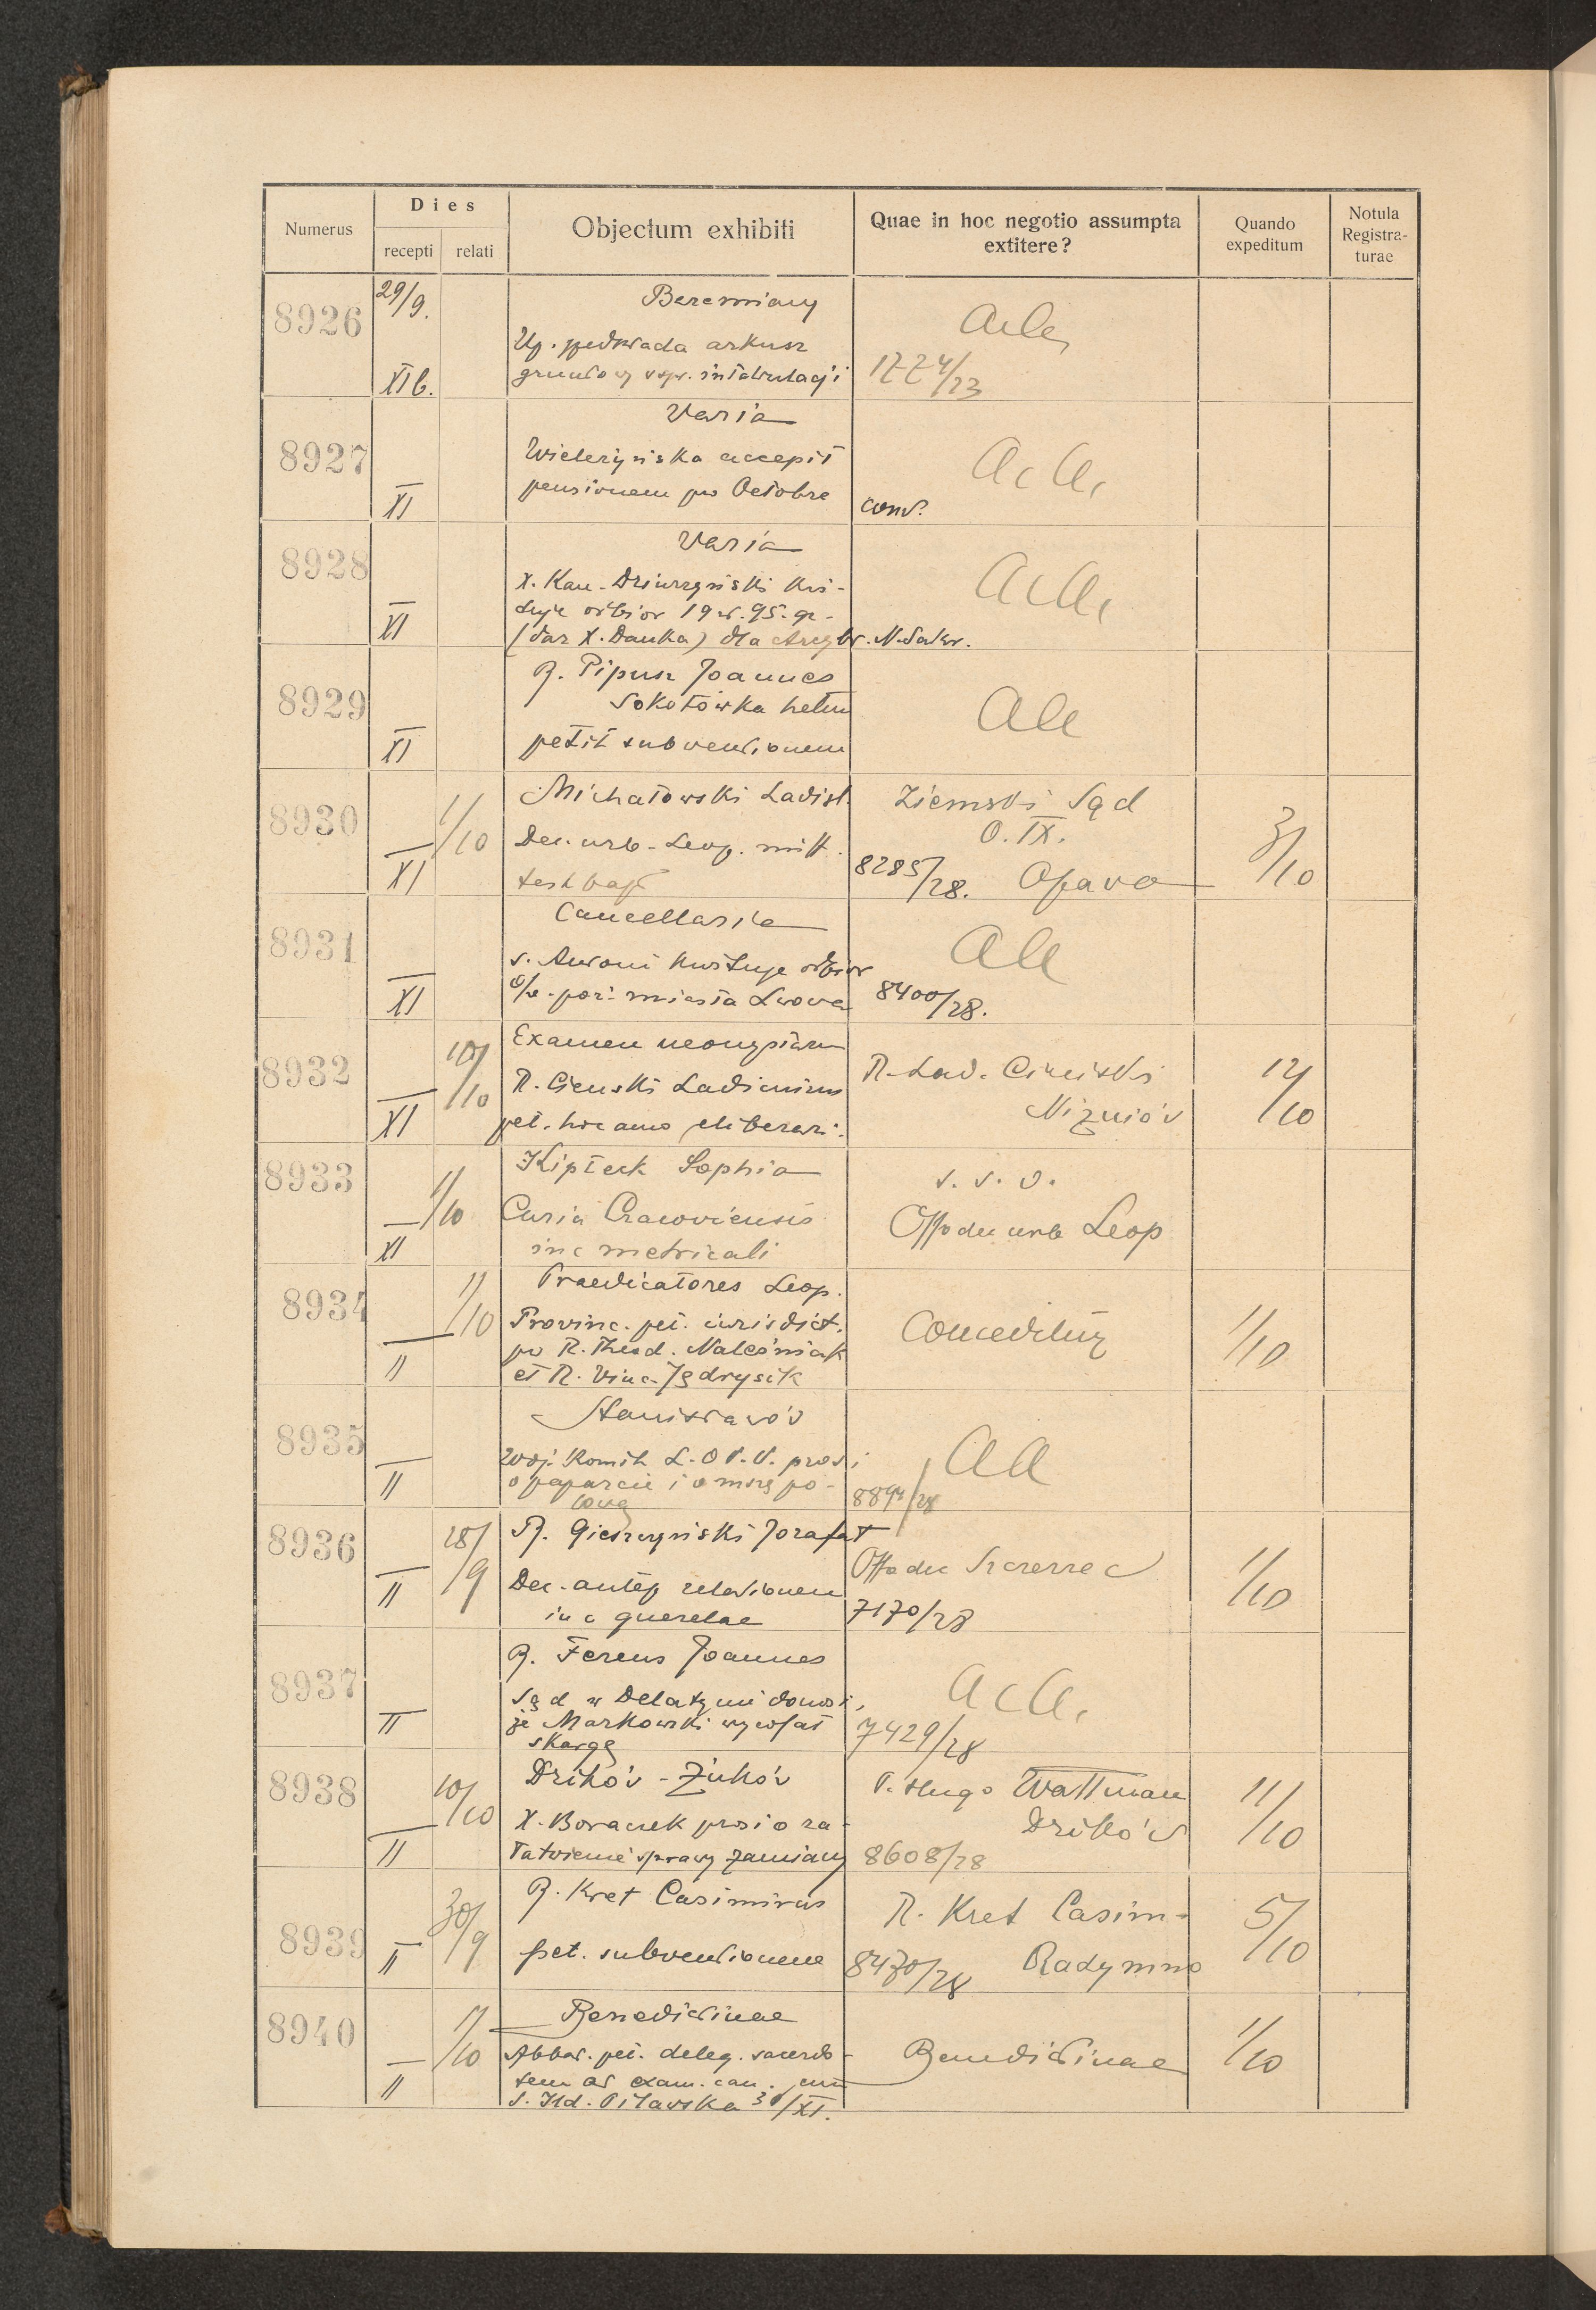 Numerus
Dies
recepti relati
Objectum exhibiti
Quae in hoc negotio assumpta
extitere?
Quando
expeditum
Notula
Registra-
turae
8926
29/9.
XIb.
Beremiany
Up. przedkłada arkusz
gruntowy intabulacji
1774/23
8927
XI
Varia
accepit
pensionem pro Octobre
Acta
8928
XI
Varia
X. Kan. Dziurzyński kwi-
tuje odbiór 19 zł. 95. gr.
(dar X. Danka) dla Arcybr. N. Sakr.
Acta
8929
XI
R. Pipusz Joannes
Sokołówka hetm
petit subventionem
8930
XI
1/10
Michałowski Ladisl.
Dec. urb. Leop. mitt.
test bapt
Ziemski Sąd
O. IX.
8285/28. Opava
3/10
8931
XI
Cancellaria
s. Antoni kwituje odbiór
miasta Lwowa
8400/28.
8932
XI
10/10
Examen neomystarum
R. Cieński Ladimirus
pet. hoc anno eliberari.
R. Lad. Cieński
Niżniów
12/10
8933
XI
1/10
Sophia
Curia Cracoviensis
in c metricali
s. v. o.
Offo dec urb Leop
8934
II
1/10
Praedicatores Leop.
Provinc. pet. iurisdict.
pro R. Theod. Naleśniak
et R. Vinc. Jędrysik
Conceditur
1/10
8935
II
Stanisławów
Woj. Komit. L. O. P. P. prosi
o poparcie i o mszę po-
lową
8894/28
8936
II
28/9
R. Gieszczyński Jozafat
Dec. antep relationem
in c querelae
Offo dec Szczerzec
7170/28
1/10
8937
II
R. Ferens Joannes
Sąd w Delatynie donosi,
że Markowski wycofał
skargę
Acta
7429/28
8938
II
10/10
Dzików - Żuków
X. Boraczek prosi o za-
łatwienie sprawy zamiany
P. Hugo Wattman
Dzików
8608/28
11/10
8939
II
30/9
R. Kret Casimirus
pet. subventionem
R. Kret Casim.
8430/28 Radymno
5/10
8940
II
1/10
Benedictinae
Abbat. pet. deleg. sacerdo-
tem ad exam. can. cum
S. Ild. Pilawska 3/XI.
Benedictinae
1/10